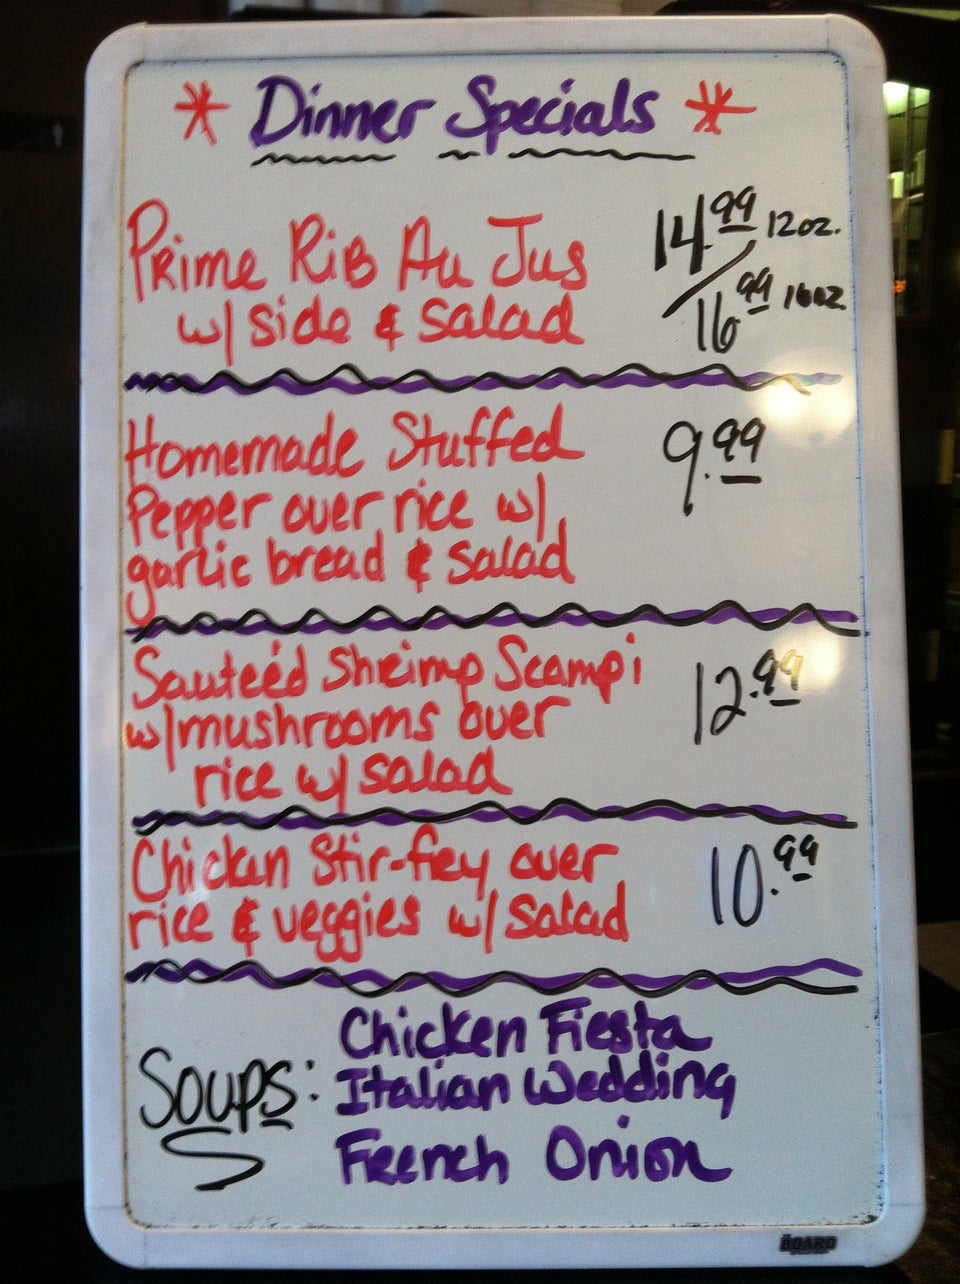 * Dinner Specials *
Prime Rib Au Jus 14.99 12oz.
w/ side & salad / 16.99 16oz
Homemade Stuffed 9.99
Pepper over rice w/
garlic bread & salad
Sauteéd Shrimp Scampi 12.99
w/mushrooms over
rice w/ salad
Chicken Stir-fry over 10.99
rice & veggies w/ salad
Soups: Chicken Fiesta
Italian Wedding
French Onion
THE BOARD